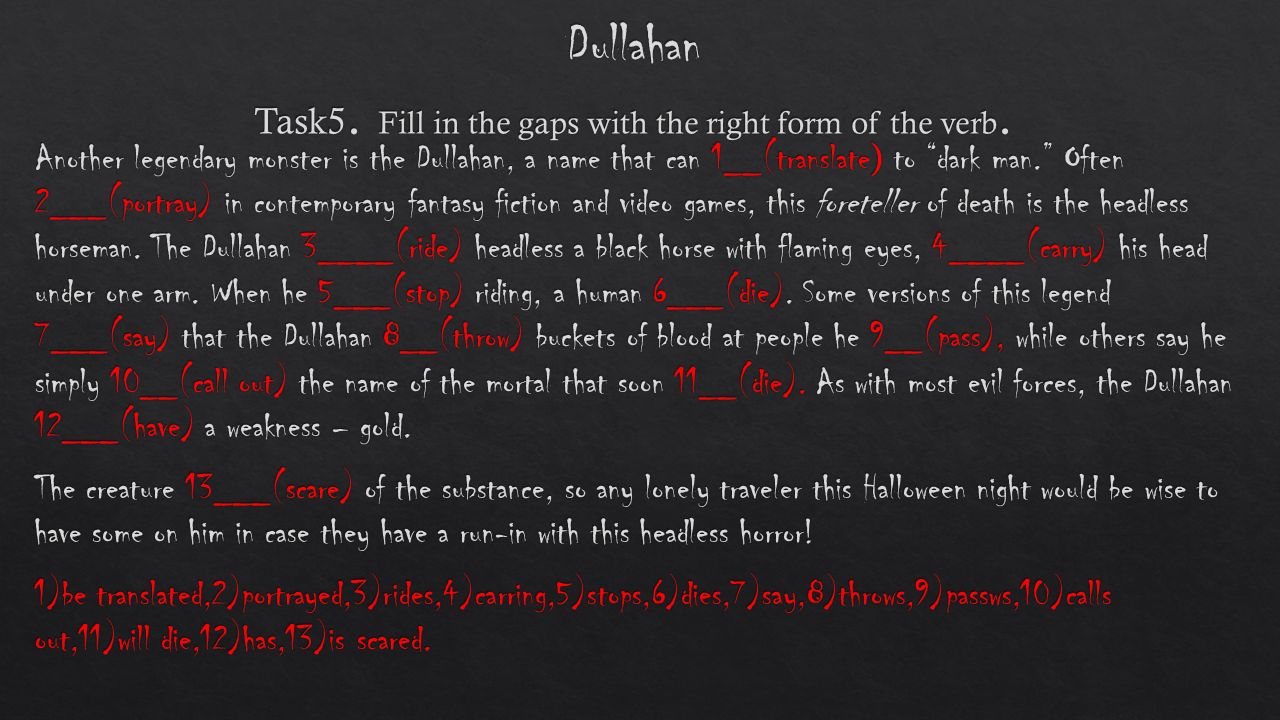 Dullahan
Task5. Fill in the gaps with the right form of the verb.
Another legendary monster is the Dullahan, a name that can 1__(translate) to “dark man.” Often
2___(portray) in contemporary fantasy fiction and video games, this foreteller of death is the headless
horseman. The Dullahan 3____(ride) headless a black horse with flaming eyes, 4____(carry) his head
under one arm. When he 5___(stop) riding, a human 6___(die). Some versions of this legend
7___(say) that the Dullahan 8__(throw) buckets of blood at people he 9__(pass), while others say he
simply 10__(call out) the name of the mortal that soon 11__(die). As with most evil forces, the Dullahan
12___(have) a weakness – gold.
The creature 13___(scare) of the substance, so any lonely traveler this Halloween night would be wise to
have some on him in case they have a run-in with this headless horror!
1)be translated,2)portrayed,3)rides,4)carring,5)stops,6)dies,7)say,8)throws,9)passws,10)calls
out,11)will die,12)has,13)is scared.